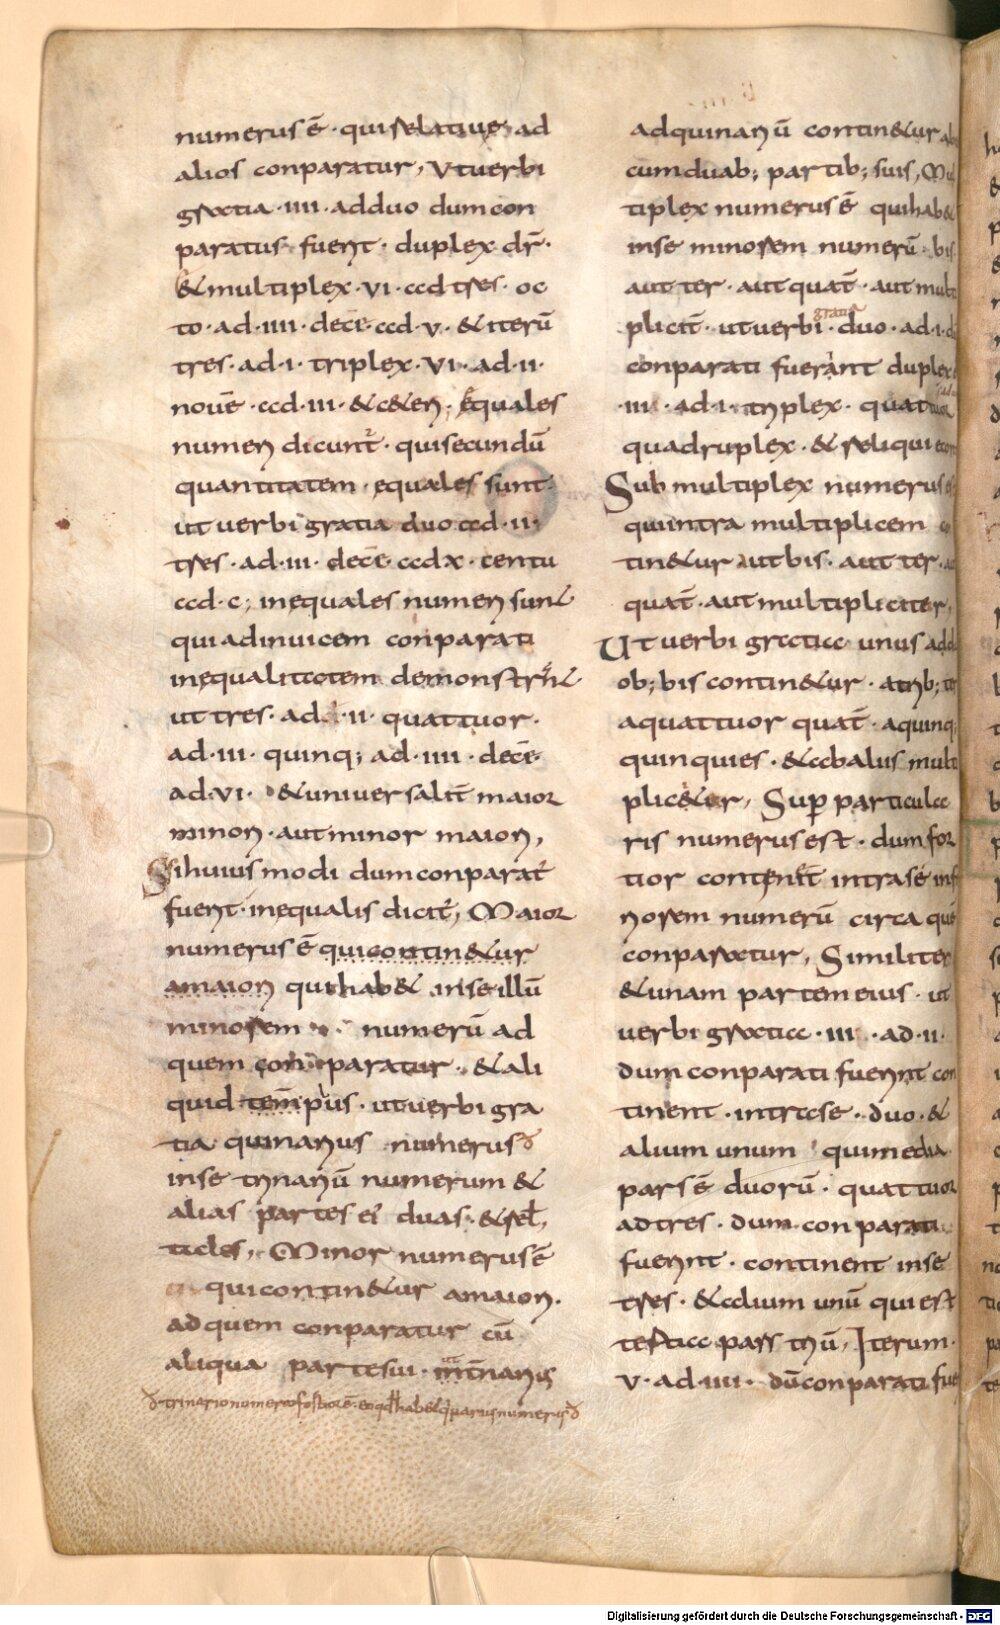 numerus ē · qui relatiuę ad
alios conparatur, Vt uerbi
gratia · IIII · ad duo dum con
paratus fuerit · duplex dr̄ ·
& multiplex · VI · ad tres · oc
to · ad · IIII · decē · ad · V · & iterū
tres · ad · I · triplex · VI · ad · II ·
nouē · ad · III · & ceteri · Equales
numeri dicunt̄ · qui secundū
quantitatem · equales sunt ·
ut uerbi gratia duo ad · II ·
tres · ad · III · decē · ad X · centū
ad · C ; inequales numeri sunt
qui ad inuicem conparati
inequalitatem demonstrant
ut tres · ad · II · quattuor ·
ad · III · quinq; ad · IIII · decē ·
ad · VI · & uniuersalit̄ maior
minori · aut minor maiori,
Si huius modi dum conparat̄
fuerit · inequalis dicit̄, Maior
numerus ē qui contin&ur
a maiori qui hab& in se illū
minorem numerū ad
quem conparatur · & ali
quid tempus · ut uerbi gra
tia quinarius numerus
in se trinariū numerum &
alias partes ei duas · & rel,
ticles, Minor numerus ē
qui contin&ur a maiori ·
ad quem conparatur cū
aliqua parte sui · trinarius
trinario numero fortiore ē · eo qd hab& numerus
ad quinariū contin&ur
cum duab; partib; suis, Mul
tiplex numerus ē qui hab&
in se minorem numerū · bis
aut ter · aut quat̄ · aut multi
plicit̄ · ut uerbi · duo · ad · I ·
gratia
conparati fuerint duplex
· III · ad · I · triplex · quattuor
quadruplex · & reliqui
Sub multiplex numerus
qui intra multiplicem
tin&ur aut bis · aut ter ·
quat̄ · aut multipliciter,
Ut uerbi gratia unus ad
ob; bis contin&ur · a trib;
a quattuor quat̄ · a quinq;
quinquies · & ab alus multi
plic&ur, Sup particula
ris numerus est · dum for
tior continet intra sé inf
riorem numerū circa quē
conparatur, Similiter
& unam partem eius · ut
uerbi gratia · III · ad · II ·
dum conparati fuerint con
tinent · intra se · duo · &
alium unum qui media
pars ē duorū · quattuor
ad tres · dum conparati
fuerint · continent in se
tres · & alium unū qui est
tertia pars triū, Iterum ·
V · ad · IIII · dū conparati fue
Digitalisierung gefördert durch die Deutsche Forschungsgemeinschaft - DFG